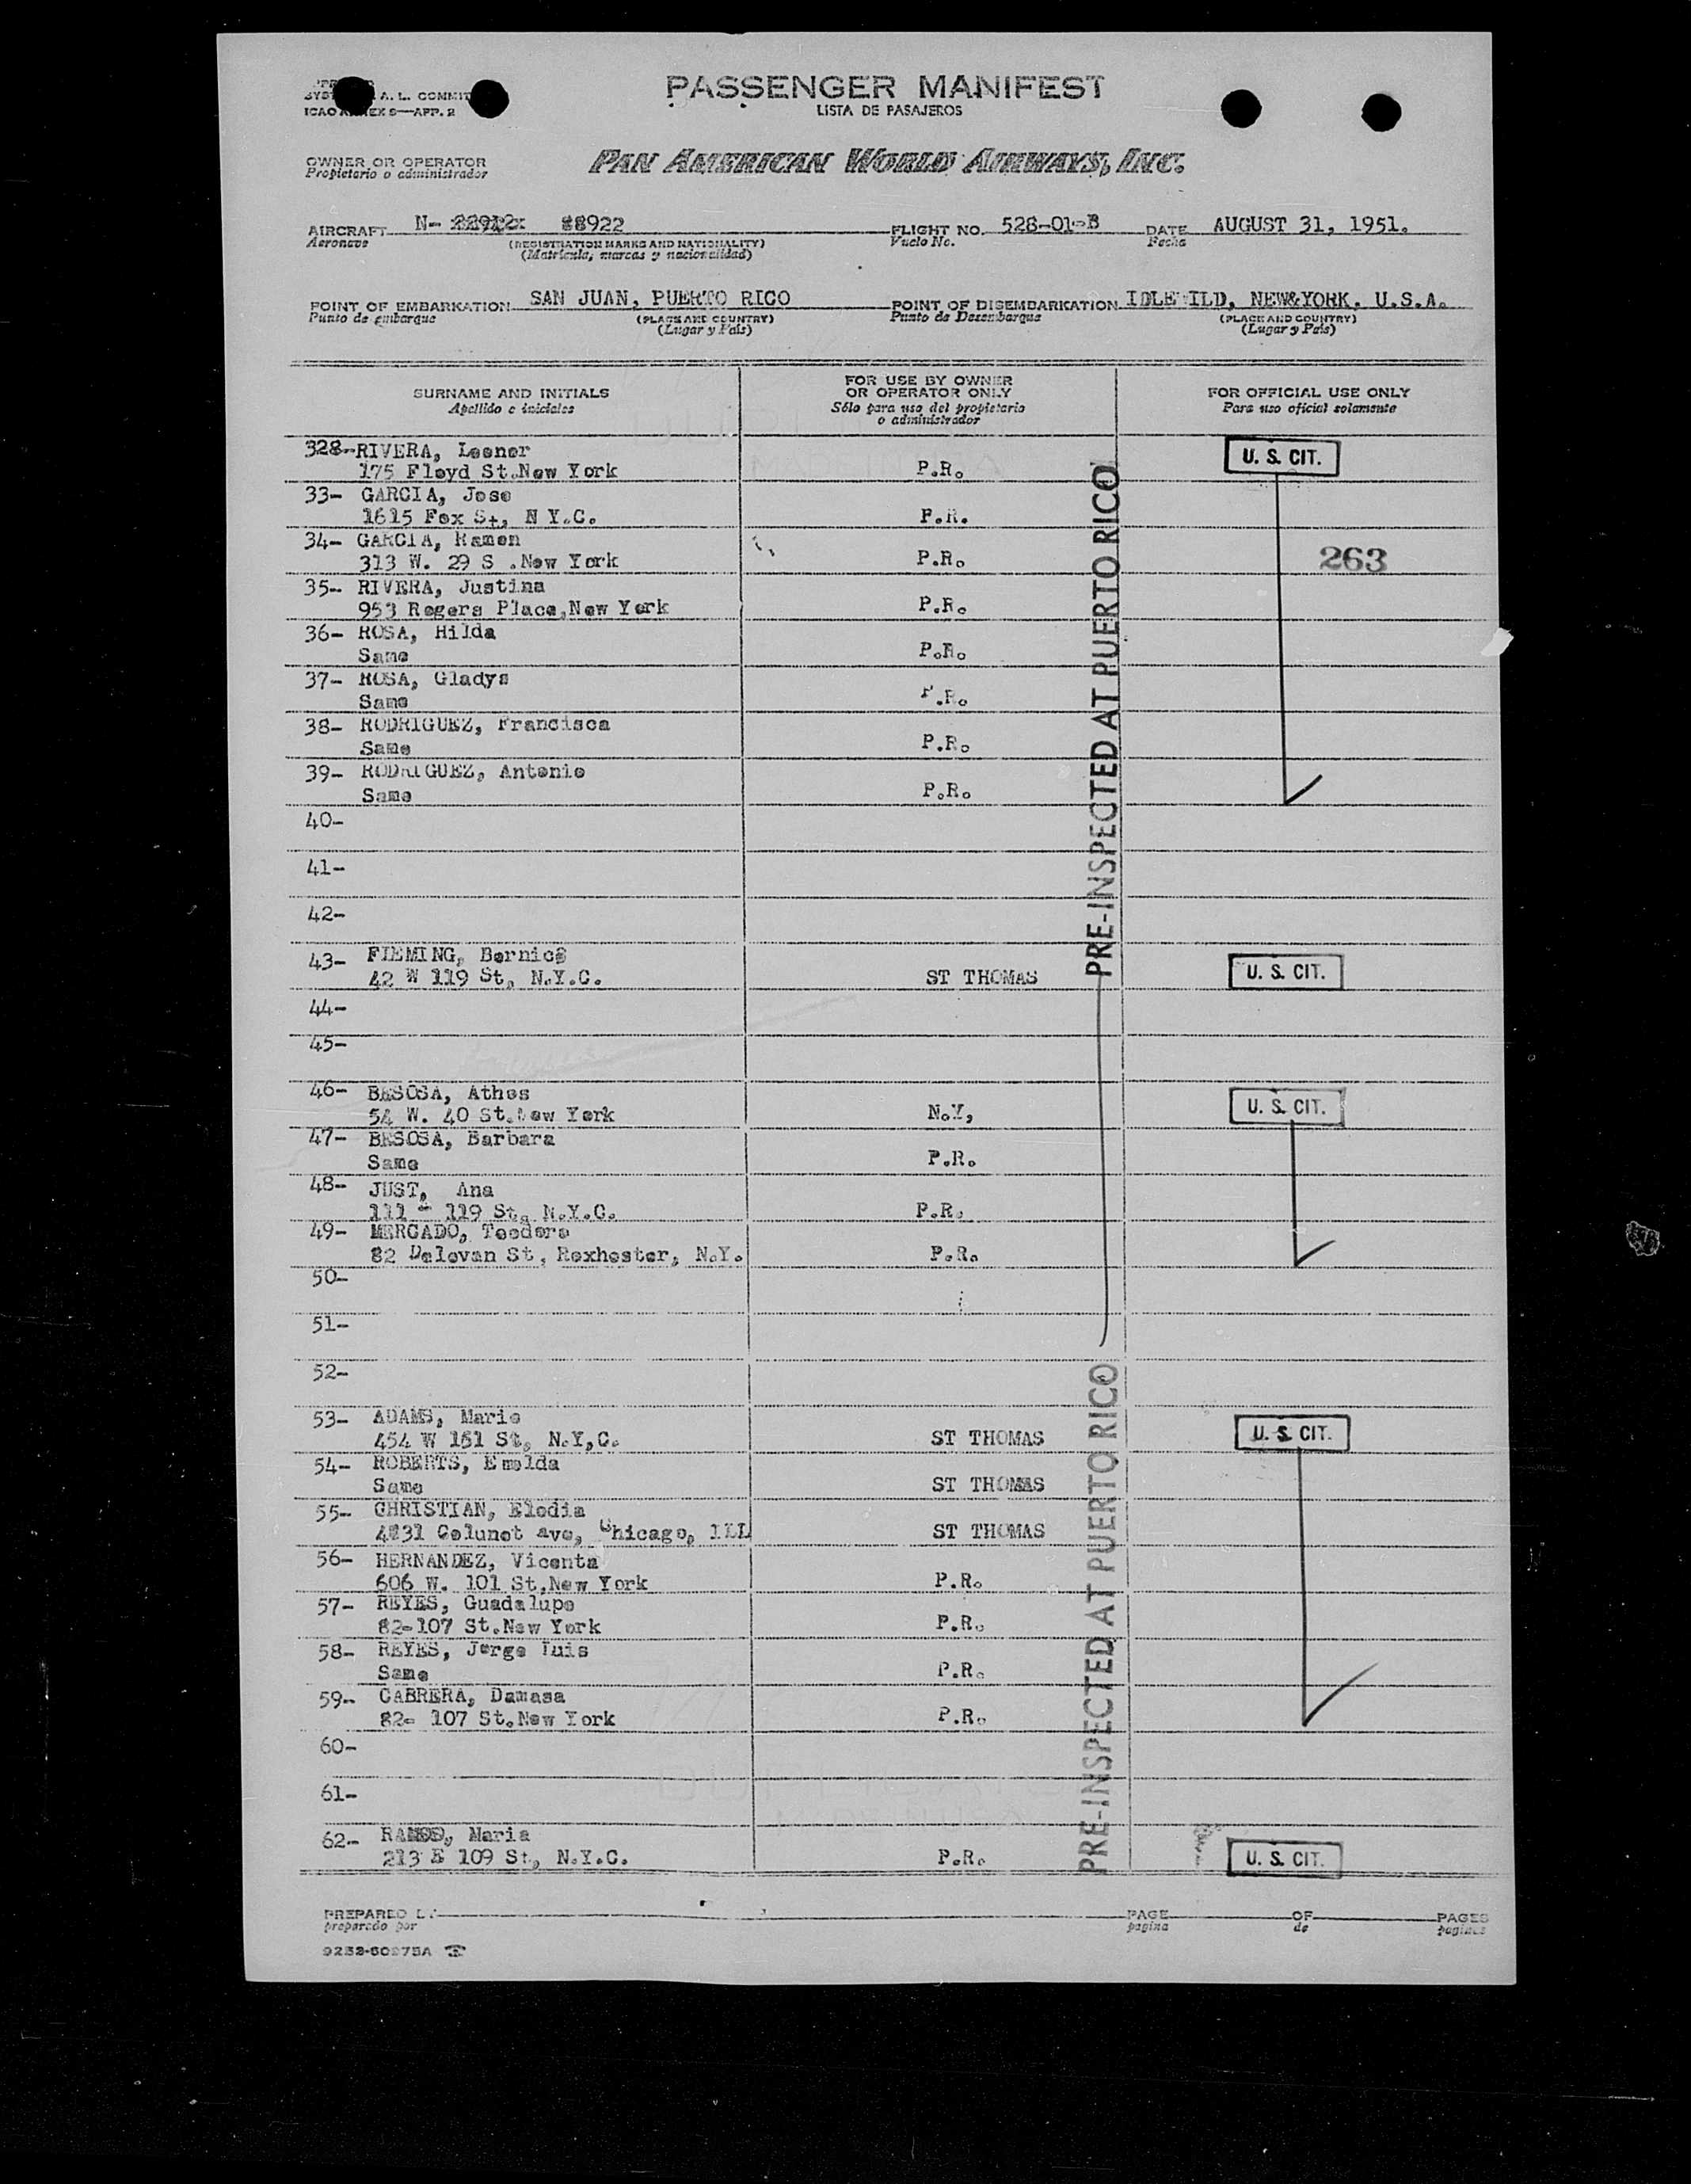 A. L. COMMIT
ICAO ANNEX 9—APP. 2
PASSENGER MANIFEST
LISTA DE PASAJEROS
OWNER OR OPERATOR
Propietario o administrador
PAN AMERICAN WORLD AIRWAYS, INC.
AIRCRAFT N- 88922
Aeronave
(REGISTRATION MARKS AND NATIONALITY)
(Matrícula, marcas y nacionalidad)
FLIGHT NO. 528-01-B
Vuelo No.
DATE AUGUST 31, 1951.
Fecha
POINT OF EMBARKATION SAN JUAN, PUERTO RICO
Punto de embarque
(PLACE AND COUNTRY)
(Lugar y País)
POINT OF DISEMBARKATION IDLE ILD, NEW&YORK. U.S.A.
Punto de Desembarque
(PLACE AND COUNTRY)
(Lugar y País)
SURNAME AND INITIALS
Apellido e iniciales
FOR USE BY OWNER
OR OPERATOR ONLY
Sólo para uso del propietario
o administrador
FOR OFFICIAL USE ONLY
Para uso oficial solamente
328-RIVERA, Leener
175 Floyd St.New York P.R. U. S. CIT.
33- GARCIA, Jose
1615 Fox St, N Y.C. P.R.
34- GARCIA, Ramon
313 W. 29 S .New York P.R. 263
35- RIVERA, Justina
953 Rogers Place,New York P.R.
36- ROSA, Hilda
Same P.R.
37- ROSA, Gladys
Same P.R.
38- RODRIGUEZ, Francisca
Same P.R.
39- RODRIGUEZ, Antonio
Same P.R.
40-
41-
42-
PRE-INSPECTED AT PUERTO RICO
43- FLEMING, Bernice
42 W 119 St, N.Y.C. ST THOMAS U. S. CIT.
44-
45-
46- BESOSA, Athos
54 W. 40 St.New York N.Y, U. S. CIT.
47- BESOSA, Barbara
Same P.R.
48- JUST, Ana
111 - 119 St, N.Y.C. P.R.
49- MERCADO, Teodoro
82 Delevan St, Rexhester, N.Y. P.R.
50-
51-
52-
53- ADAMS, Marie
454 W 151 St, N.Y,C. ST THOMAS U. S. CIT.
54- ROBERTS, Emelda
Same ST THOMAS
55- CHRISTIAN, Elodia
4831 Colunet ave, Chicago, ILL ST THOMAS
56- HERNANDEZ, Vicenta
606 W. 101 St,New York P.R.
57- REYES, Guadalupe
82-107 St.New York P.R.
58- REYES, Jorge Luis
Same P.R.
59- CABRERA, Damasa
82- 107 St.New York P.R.
60-
61-
62- RAMOS, Maria
213 E 109 St, N.Y.C. P.R. U. S. CIT.
PRE-INSPECTED AT PUERTO RICO
PREPARED BY
preparado por
PAGE OF PAGES
pagina de paginas